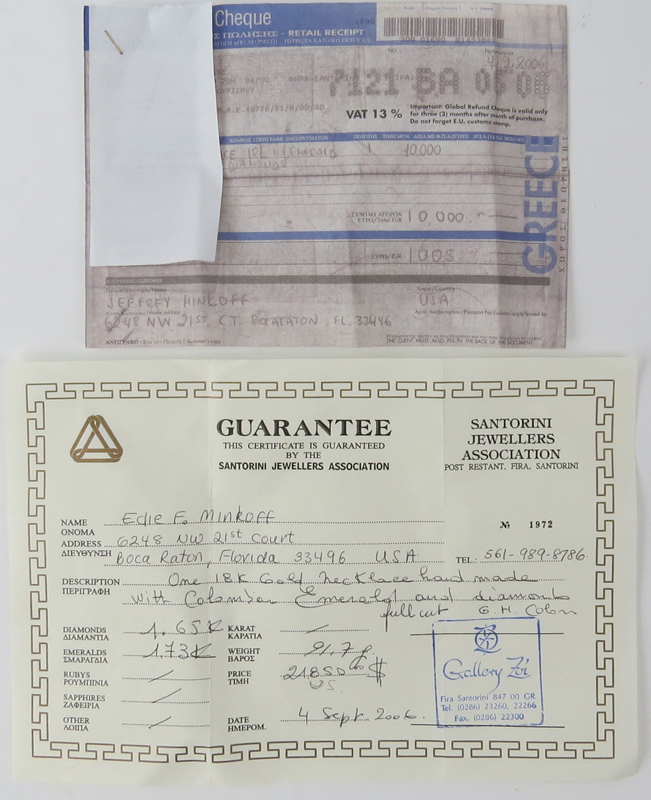 Cheque
ΠΩΛΗΣΗΣ - RETAIL RECEIPT
VAT 13 %
Important: Global Refund Cheque is valid only
for three (3) months after month of purchase.
Do not forget E.U. customs stamp.
10.000
10,000.-
1005
GREECE
ΧΩΡΟΣ ΘΕΩΡΗΣΗΣ
JEFFREY MINKOFF
USA
6248 NW 21ST CT. FL. 33496
THE CLIENT MUST ALSO FILL IN THE BACK OF THE DOCUMENT.
GUARANTEE
THIS CERTIFICATE IS GUARANTEED
BY THE
SANTORINI JEWELLERS ASSOCIATION
SANTORINI
JEWELLERS
ASSOCIATION
POST RESTANT. FIRA, SANTORINI
№ 1972
NAME Edie F. Minkoff
ΟΝΟΜΑ
ADDRESS 6248 NW 21st Court
ΔΙΕΥΘΥΝΣΗ Boca Raton, Florida 33496 USA TEL: 561-989-8786
DESCRIPTION One 18K Gold necklace hand made
ΠΕΡΙΓΡΑΦΗ with Emerald and diamonds
full cut G.H. Color
DIAMONDS 1.65 KARAT
ΔΙΑΜΑΝΤΙΑ ΚΑΡΑΤΙΑ
EMERALDS 1.73 WEIGHT 21,7 g.
ΣΜΑΡΑΓΔΙΑ ΒΑΡΟΣ
RUBYS PRICE 21850 $
ΡΟΥΜΠΙΝΙΑ ΤΙΜΗ US.
SAPPHIRES
ΖΑΦΕΙΡΙΑ
OTHER DATE 4 Sept 2006.
ΛΟΙΠΑ ΗΜΕΡΟΜ.
Gallery
Fira Santorini 847 00 GR
Tel. (0286) 23260, 22266
Fax. (0286) 22300